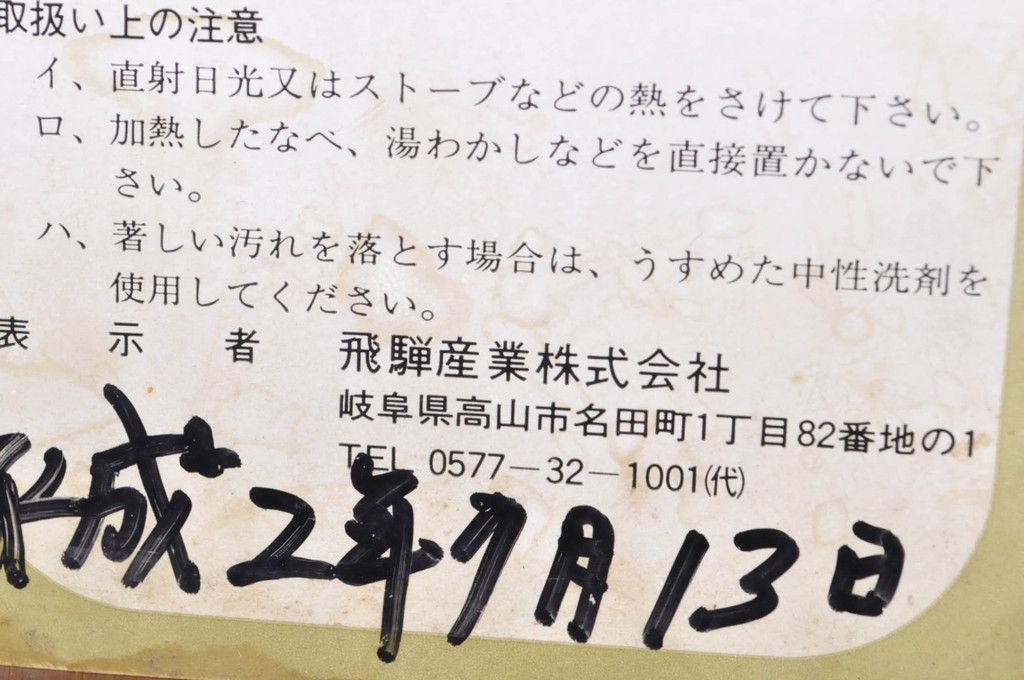 取扱い上の注意
イ、直射日光又はストーブなどの熱をさけて下さい。
ロ、加熱したなべ、湯わかしなどを直接置かないで下
さい。
ハ、著しい汚れを落とす場合は、うすめた中性洗剤を
使用してください。
表示者 飛騨産業株式会社
岐阜県高山市名田町1丁目82番地の1
TEL 0577-32-1001(代)
平成2年7月13日